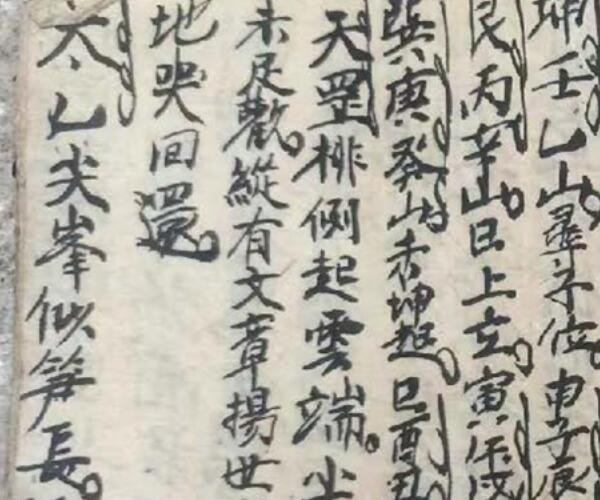 坤壬乙山尋子位申子辰
艮丙辛山巳上立寅午戌
巽庚癸山未坤起巳酉丑
天罡排側起雲端坐
未足歡縱有文章揚世
地哭回還
太乙尖峯似笋長